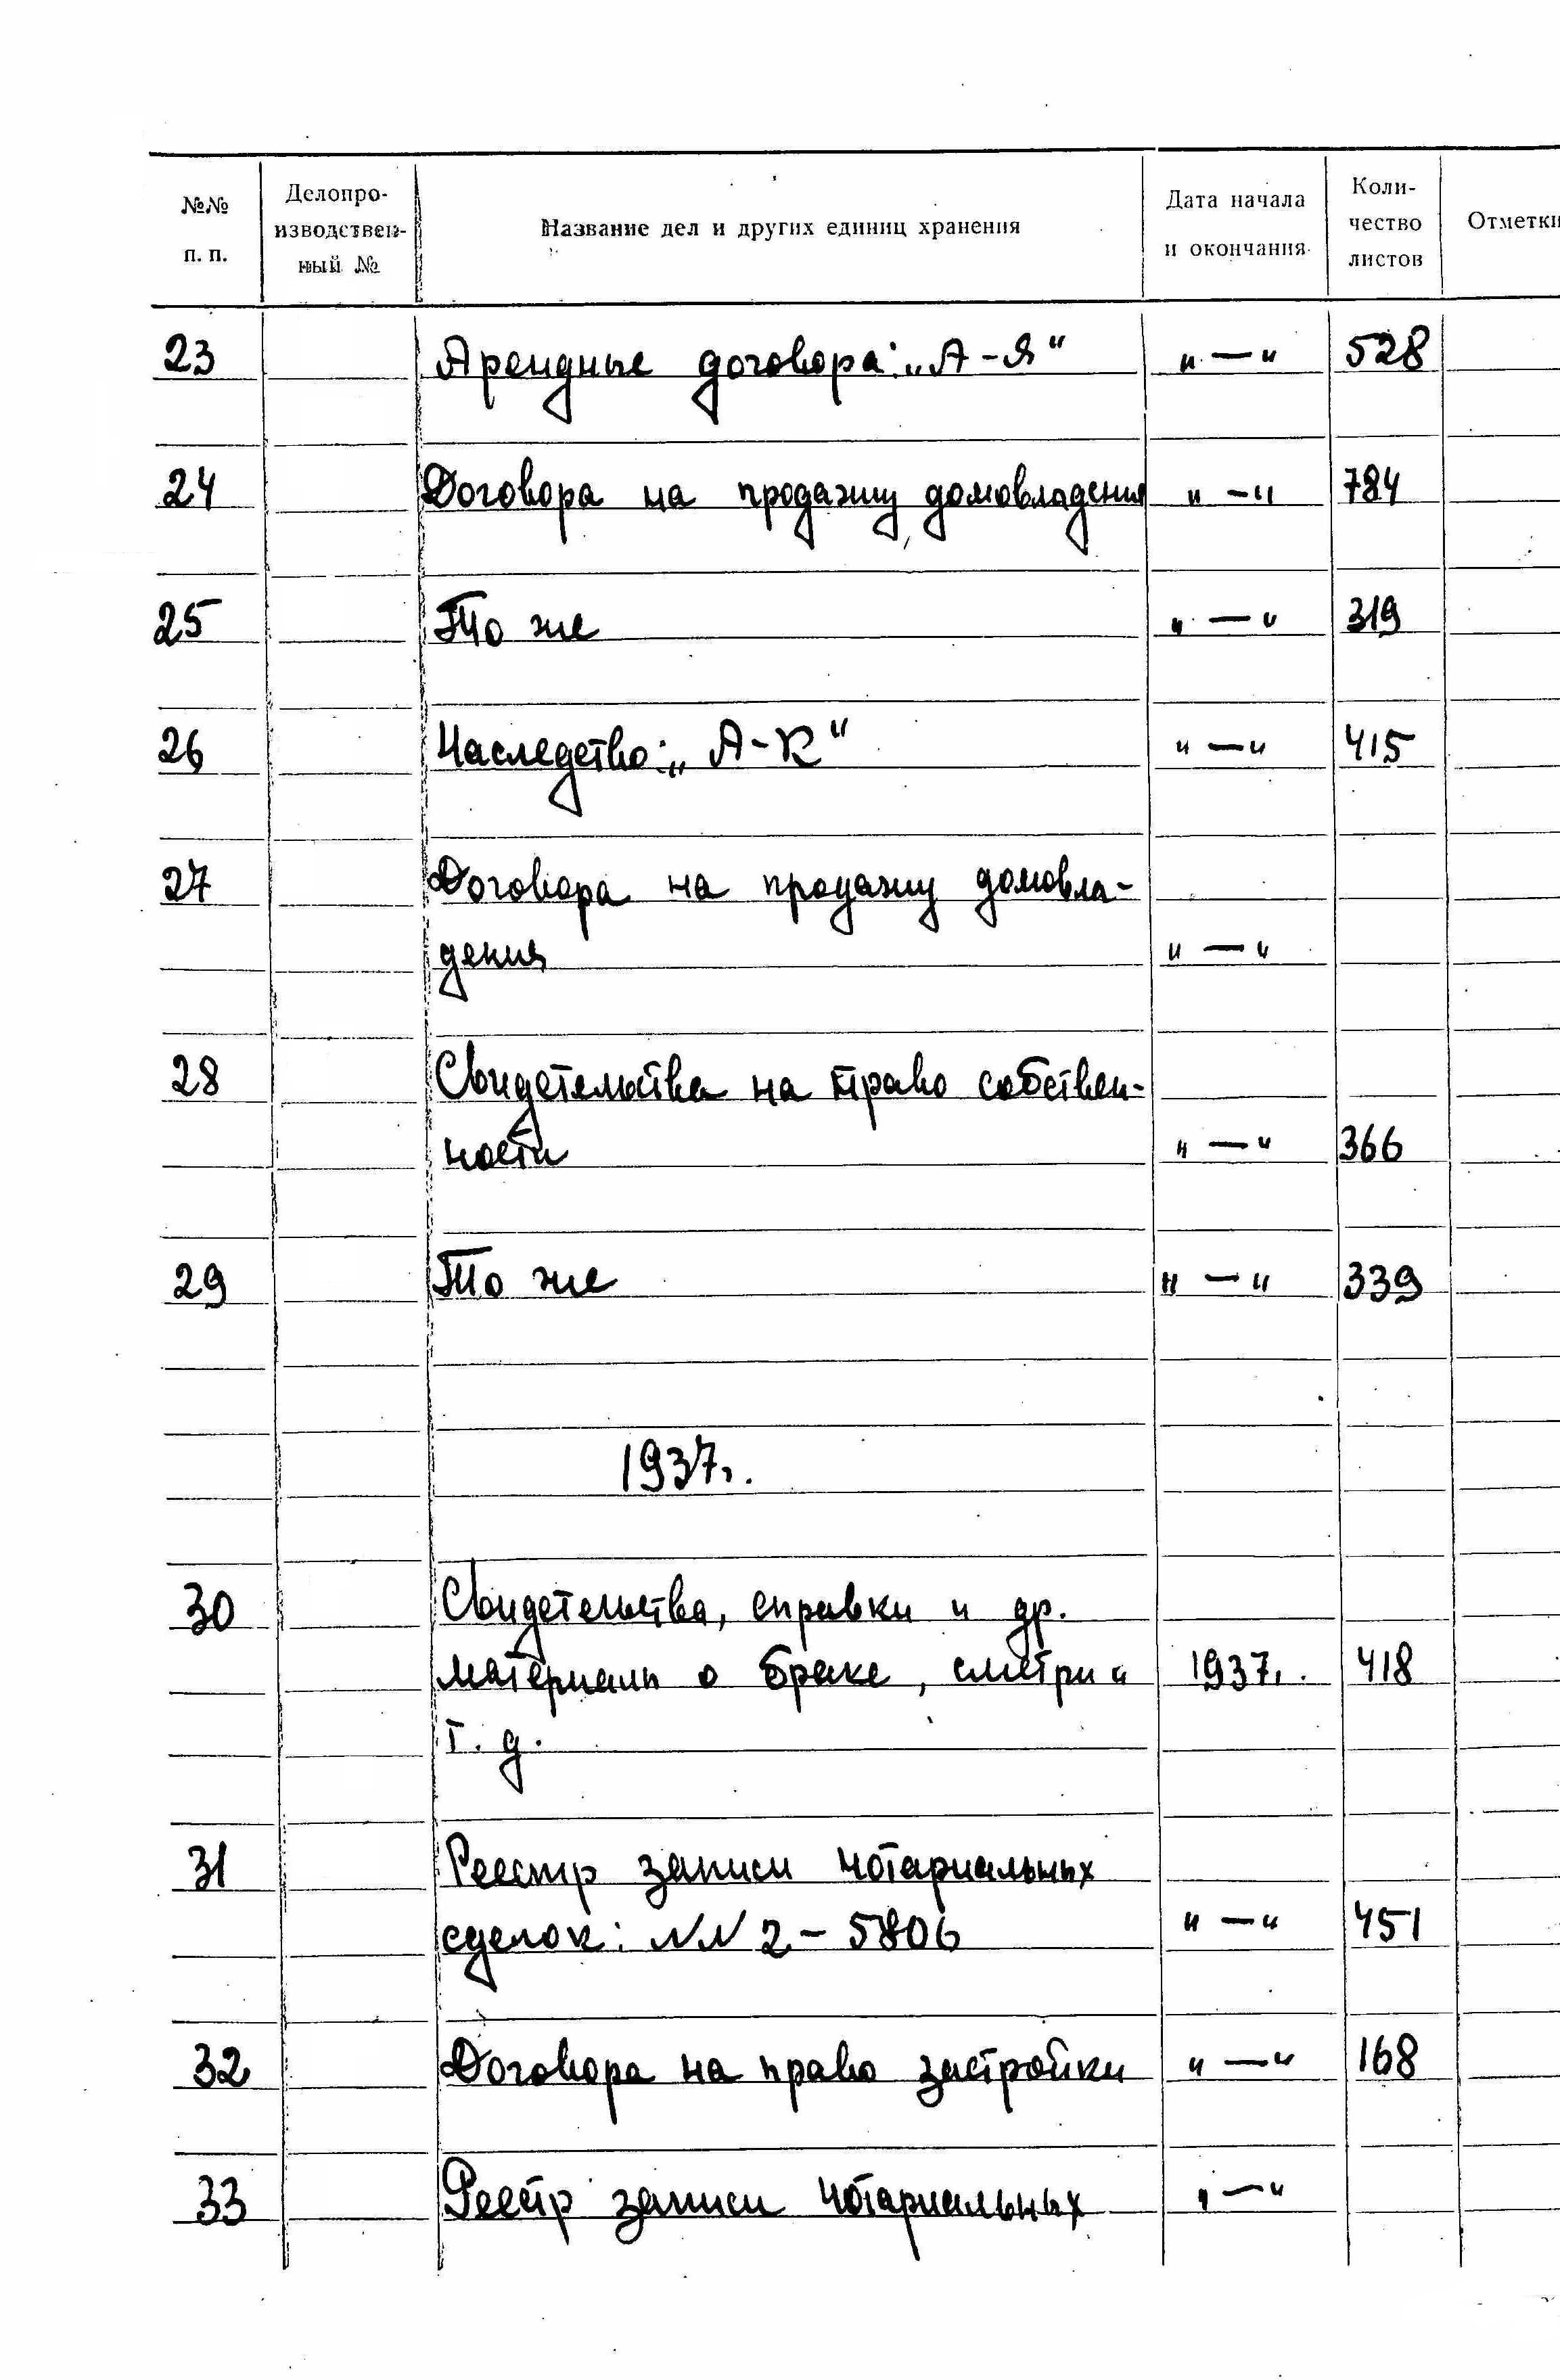 №№ п. п.
Делопро-изводствен-ный №
Название дел и других единиц хранения
Дата начала и окончания
Коли-чество листов
Отметки
23 Арендные договора: „А-Я“ „ — „ 528
24 Договора на продажу домовладения „ — „ 784
25 То же „ — „ 319
26 Наследство: „А-К“ „ — „ 415
27 Договора на продажу домовла-
дения „ — „
28 Свидетельства на право собствен-
ности „ — „ 366
29 То же „ — „ 339
1937г.
30 Свидетельства, справки и др.
материалы о браке, смерти и 1937г. 418
т. д.
31 Реестр записи нотариальных
сделок: NN 2 - 5806 „ — „ 451
32 Договора на право застройки „ — „ 168
33 Реестр записи нотариальных „ — „